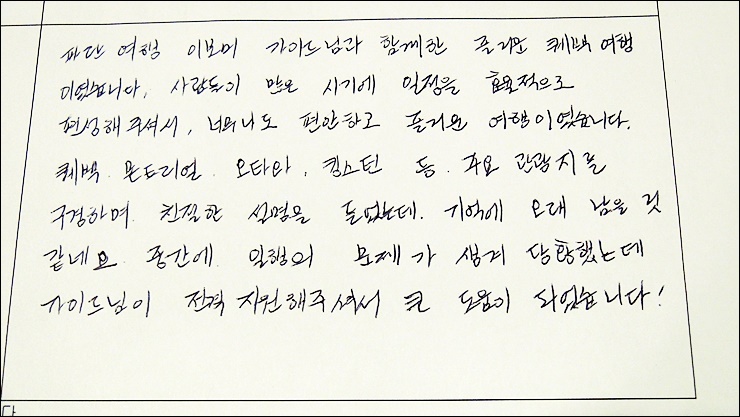 파란 여행 이보미 가이드님과 함께한 즐거운 퀘백 여행
이였습니다. 사람들이 많은 시기에 일정을 효율적으로
편성해주셔서, 너무나도 편안하고 즐거운 여행이였습니다.
퀘백. 몬트리얼. 오타와, 킹스턴 등. 주요 관광지를
구경하며 친절한 설명을 들었는데. 기억에 오래 남을 것
같네요 중간에 일행의 문제가 생겨 당황했는데
가이드님이 적극 지원해주셔서 큰 도움이 되었습니다!